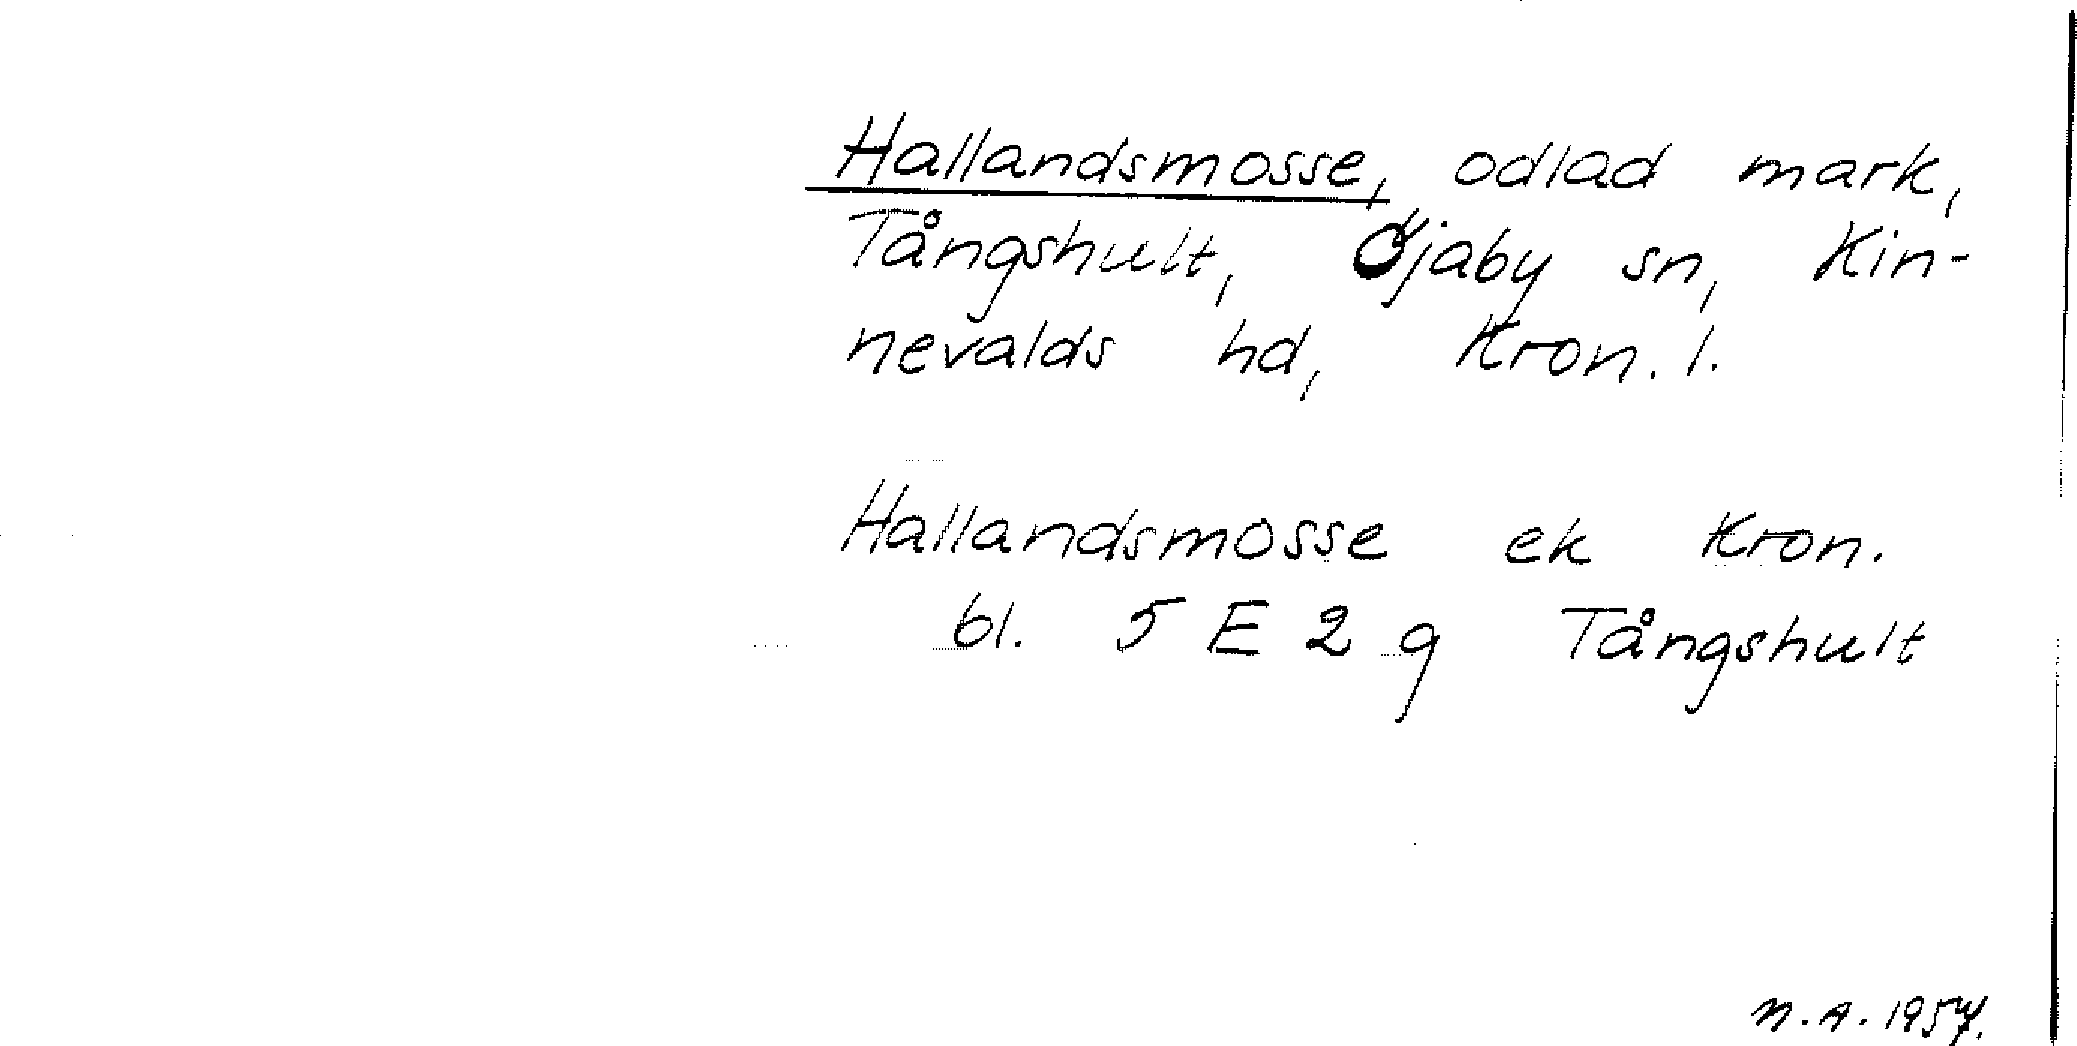 Hallandsmosse, odlad mark,
Tångshult, Öjaby sn, Kin-
nevalds hd, Kron. l.
Hallandsmosse ek Kron.
bl. 5 E 2 g Tångshult
N.A. 1957.